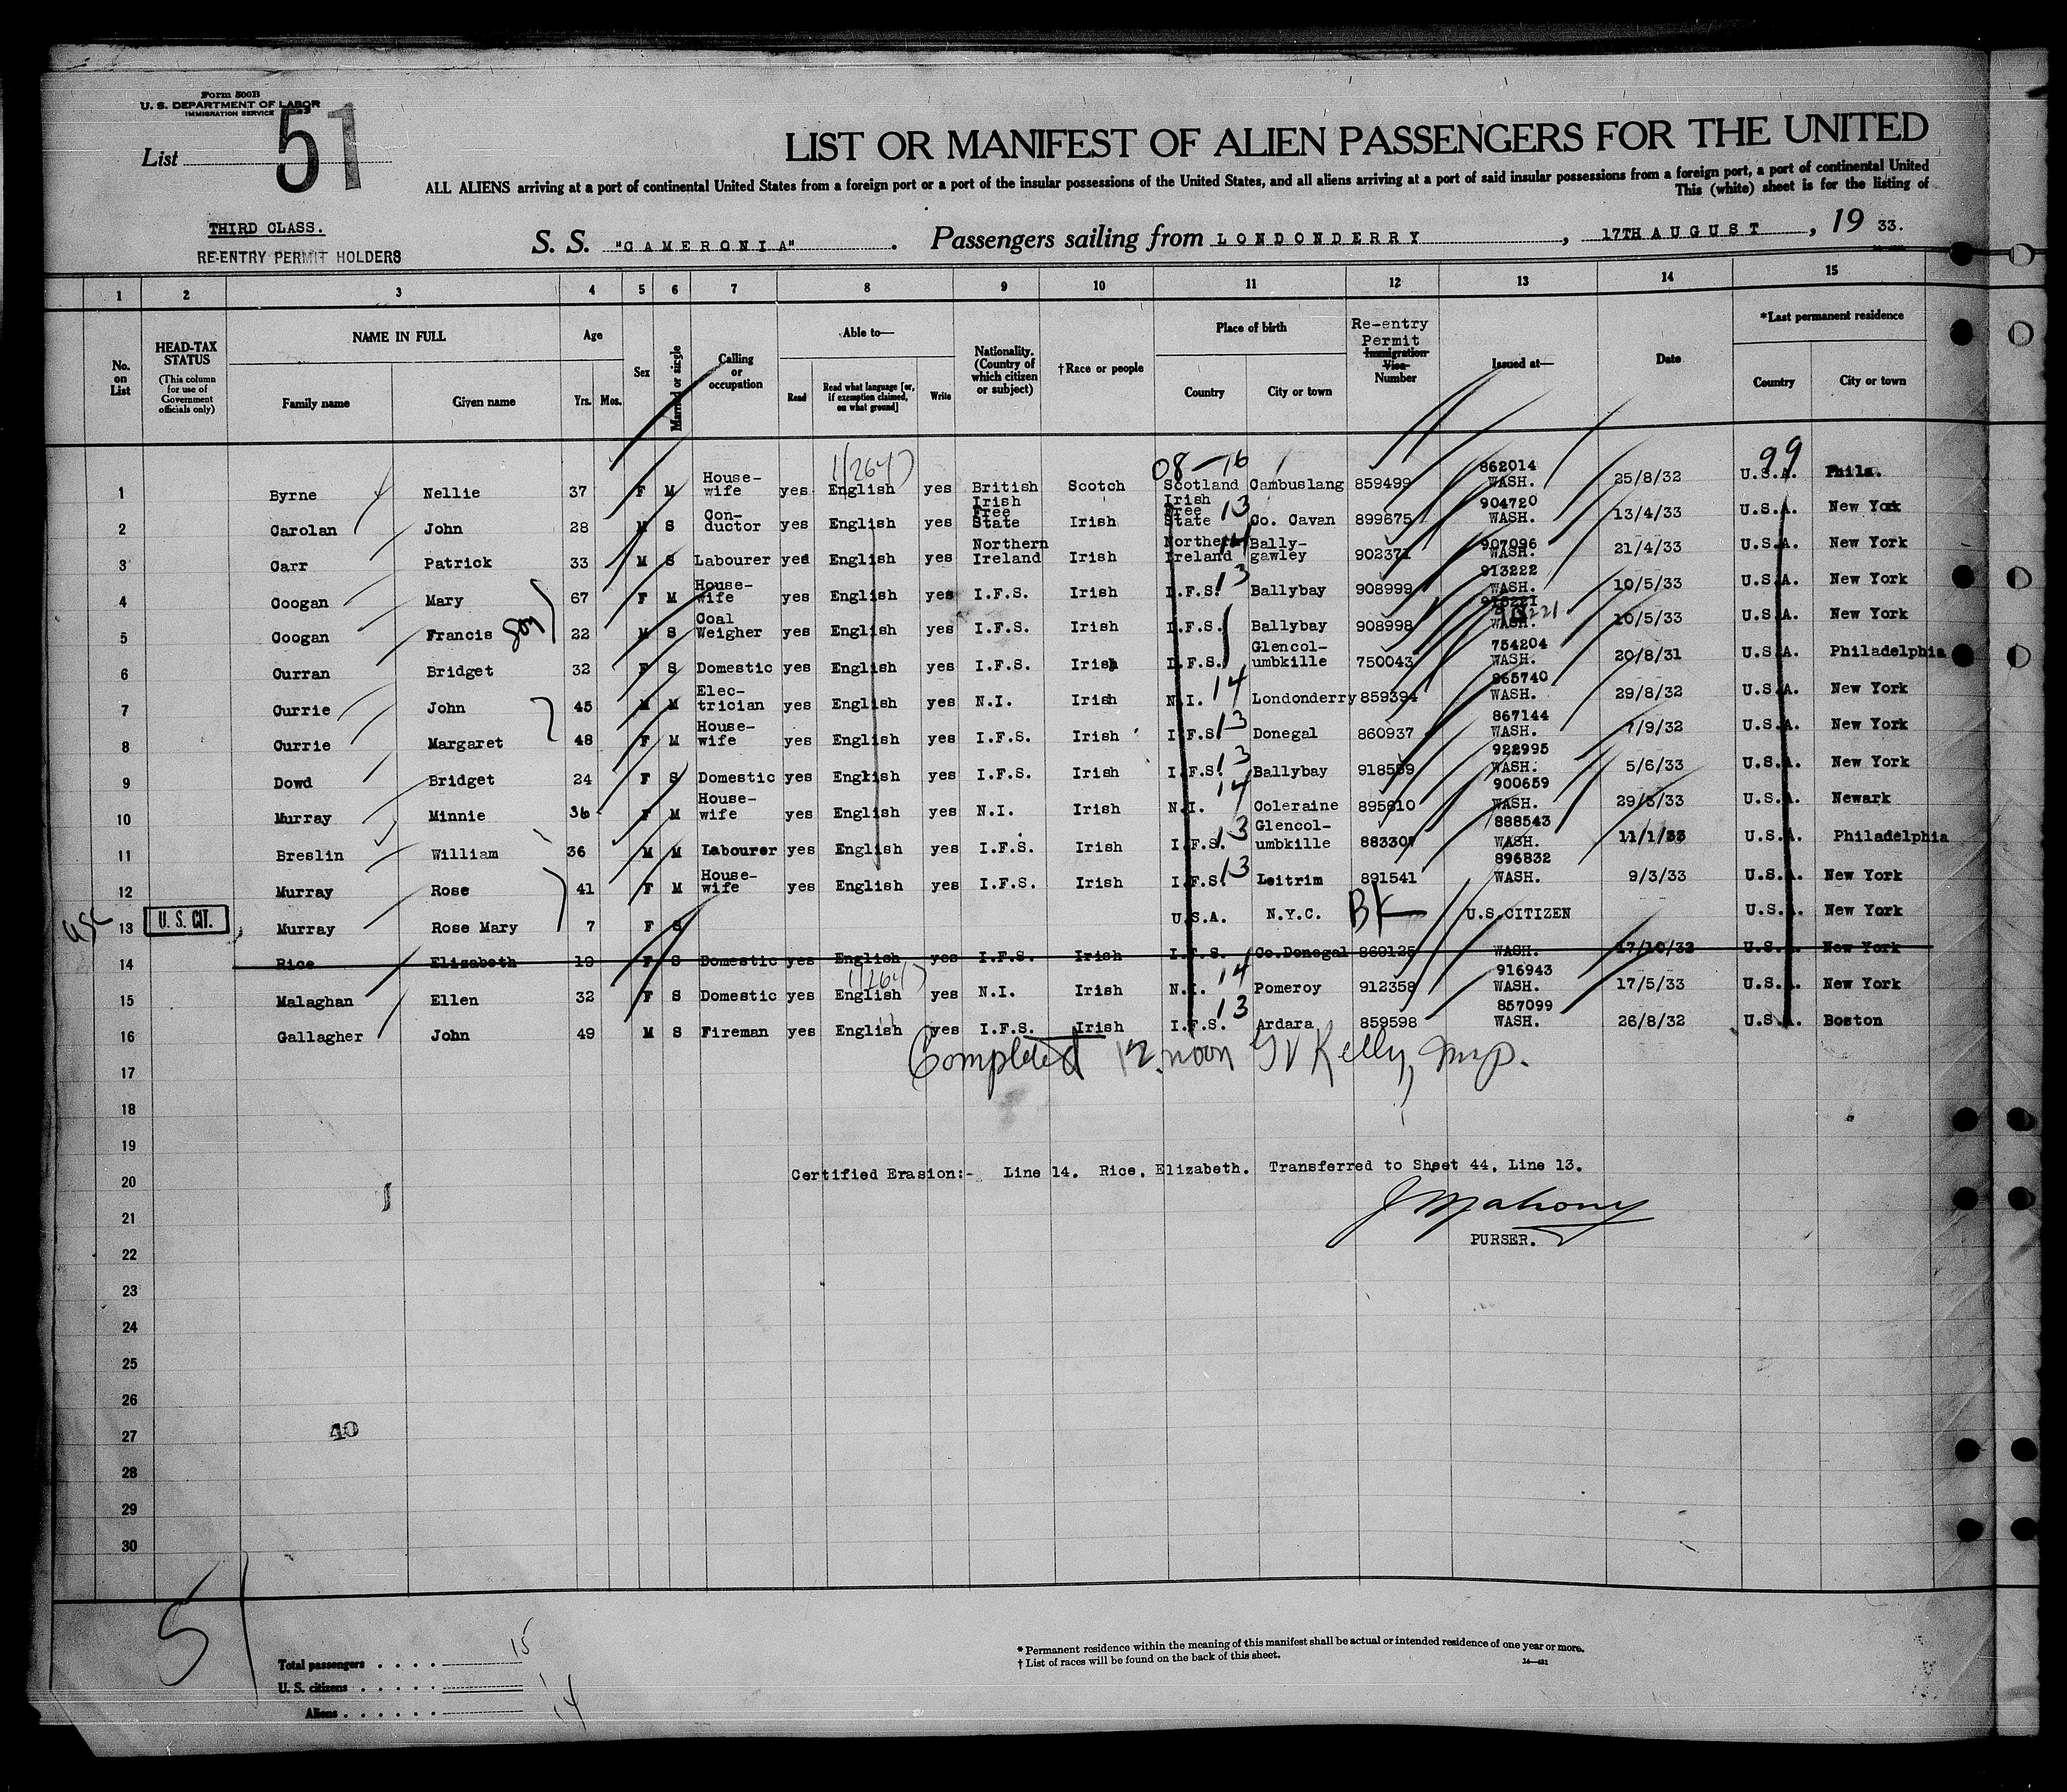 Form 500B
U. S. DEPARTMENT OF LABOR
IMMIGRATION SERVICE
List 51
LIST OR MANIFEST OF ALIEN PASSENGERS FOR THE UNITED
ALL ALIENS arriving at a port of continental United States from a foreign port or a port of the insular possessions of the United States, and all aliens arriving at a port of said insular possessions from a foreign port, a port of continental United
This (white) sheet is for the listing of
THIRD CLASS.
RE-ENTRY PERMIT HOLDERS
S. S. "CAMERONIA". Passengers sailing from LONDONDERRY, 17TH AUGUST, 19 33.
1 2 3 4 5 6 7 8 9 10 11 12 13 14 15
No. on List
HEAD-TAX STATUS (This column for use of Government officials only)
NAME IN FULL Family name Given name
Age Yrs. Mos.
Sex
Married or single
Calling or occupation
Able to— Read Read what language [or, if exemption claimed, on what ground] Write
Nationality. (Country of which citizen or subject)
†Race or people
Place of birth Country City or town
Re-entry Permit Immigration Visa Number
Issued at—
Date
*Last permanent residence Country City or town
1 Byrne Nellie 37 F M House-wife yes English yes British Scotch Scotland Cambuslang 859499 862014 WASH. 25/8/32 U.S.A. Phila.
(264) 08-16 99
2 Carolan John 28 M S Con-ductor yes English yes Irish Free State Irish Irish Free State 13 Co. Cavan 899675 904720 WASH. 13/4/33 U.S.A. New York
3 Carr Patrick 33 M S Labourer yes English yes Northern Ireland Irish Northern Ireland 14 Bally-gawley 902371 907096 WASH. 21/4/33 U.S.A. New York
4 Coogan Mary 67 F M House-wife yes English yes I.F.S. Irish I.F.S. 13 Ballybay 908999 913222 WASH. 10/5/33 U.S.A. New York
5 Coogan Francis son 22 M S Coal Weigher yes English yes I.F.S. Irish I.F.S. Ballybay 908998 913221 WASH. 10/5/33 U.S.A. New York
6 Curran Bridget 32 F S Domestic yes English yes I.F.S. Irish I.F.S. Glencol-umbkille 750043 754204 WASH. 20/8/31 U.S.A. Philadelphia
7 Currie John 45 M M Elec-trician yes English yes N.I. Irish N.I. 14 Londonderry 859394 865740 WASH. 29/8/32 U.S.A. New York
8 Currie Margaret 48 F M House-wife yes English yes I.F.S. Irish I.F.S. 13 Donegal 860937 867144 WASH. 7/9/32 U.S.A. New York
9 Dowd Bridget 24 F S Domestic yes English yes I.F.S. Irish I.F.S. 13 Ballybay 918589 922995 WASH. 5/6/33 U.S.A. New York
10 Murray Minnie 36 F M House-wife yes English yes N.I. Irish N.I. 14 Coleraine 895610 900659 WASH. 29/3/33 U.S.A. Newark
11 Breslin William 36 M M Labourer yes English yes I.F.S. Irish I.F.S. 13 Glencol-umbkille 883307 888543 WASH. 11/1/33 U.S.A. Philadelphia
12 Murray Rose 41 F M House-wife yes English yes I.F.S. Irish I.F.S. 13 Leitrim 891541 896832 WASH. 9/3/33 U.S.A. New York
USC 13 U. S. CIT. Murray Rose Mary 7 F S U.S.A. N.Y.C. BK U.S.CITIZEN U.S.A. New York
14 Rice Elizabeth 19 F S Domestic yes English yes I.F.S. Irish I.F.S. Co.Donegal 869125 WASH. 17/10/32 U.S.A. New York
15 Malaghan Ellen 32 F S Domestic yes English (264) yes N.I. Irish N.I. 14 Pomeroy 912358 916943 WASH. 17/5/33 U.S.A. New York
16 Gallagher John 49 M S Fireman yes English yes I.F.S. Irish I.F.S. 13 Ardara 859598 857099 WASH. 26/8/32 U.S.A. Boston
Completed 12 noon Kelly,
17
18
19
Certified Erasion:- Line 14. Rice, Elizabeth. Transferred to Sheet 44, Line 13.
20
J Mahony
21
PURSER.
22
23
24
25
26
40
27
28
29
30
51
Total passengers . . . . 15
U. S. citizens . . . . . 1
Aliens . . . . . . 14
* Permanent residence within the meaning of this manifest shall be actual or intended residence of one year or more.
† List of races will be found on the back of this sheet.